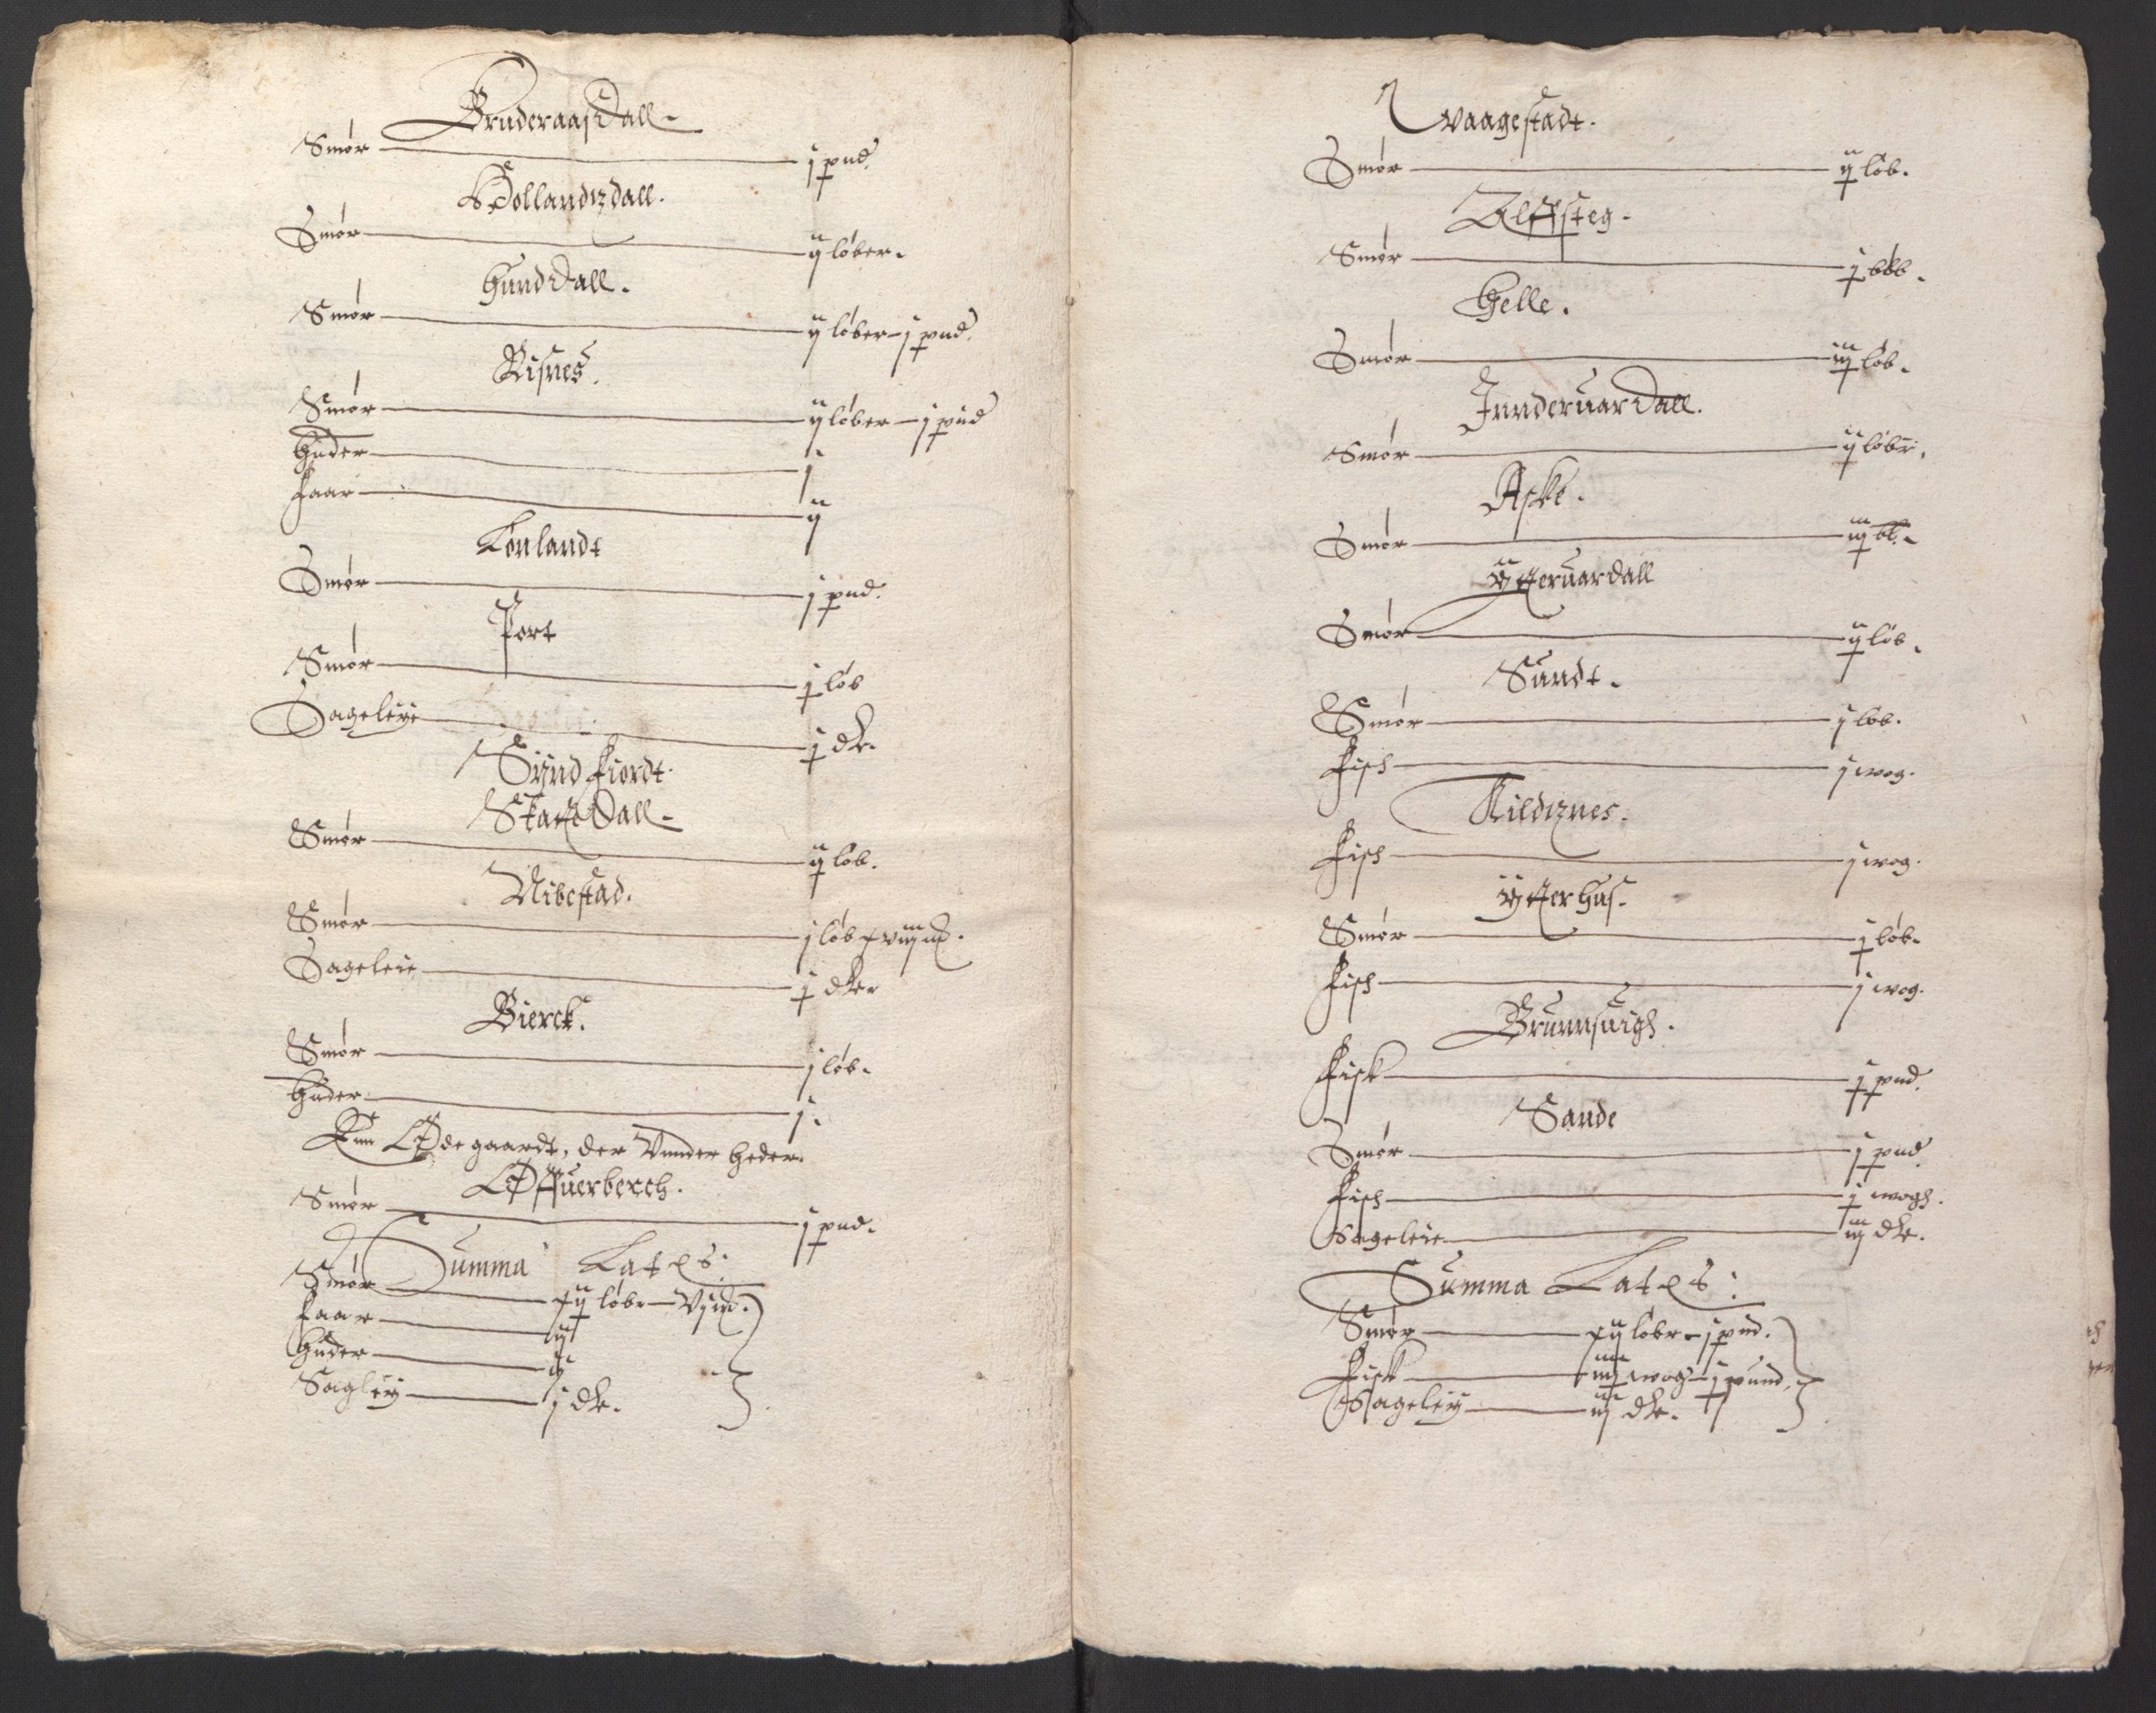 Bruderaasdall
Smør j pnd.
Hollandzdall.
Smør ij løber.
Hunddall.
Smør ij løber – j pnd.
Risnes.
Smør ij løber – j pnd
Huder j
Faar ij
Lønlandt
Smør j pnd.
Port
Smør j løb
Sageleye j dkr.
Sønd Fiordt.
Smør ij løb.
Nibestad.
Smør j løb
Sageleie j dker
Bierck.
Smør j løb.
Huder j.
Enn Ødegaardt, der Vnnder heder.
Øffuerberch.
Smør j pnd.
Summa Lates:
Smør xij løbr – Vj m.
Faar ij
Huder ij
Sagleij j dkr.
Waagestadt.
Smør ij løb.
Alffsteg.
Smør j løb.
Helle.
Smør iij løb.
Innderuardall.
Smør ij løbr.
Aske.
Smør
Ytteruardall
Smør ij løb.
Sundt.
Smør j løb.
Fisch j wog.
Kildznes.
Fisch j wog.
Ytterhus.
Smør j løb.
Fisch j wog.
Brunnsuigh.
Fisk j pnd.
Sande
Smør j pnd.
Fisch j wogh.
Sageleie iij dkr.
Summa Lates:
Smør xij løbr – j pnd.
Fisk iiij wog – j pund.
Sageleij iij dkr.